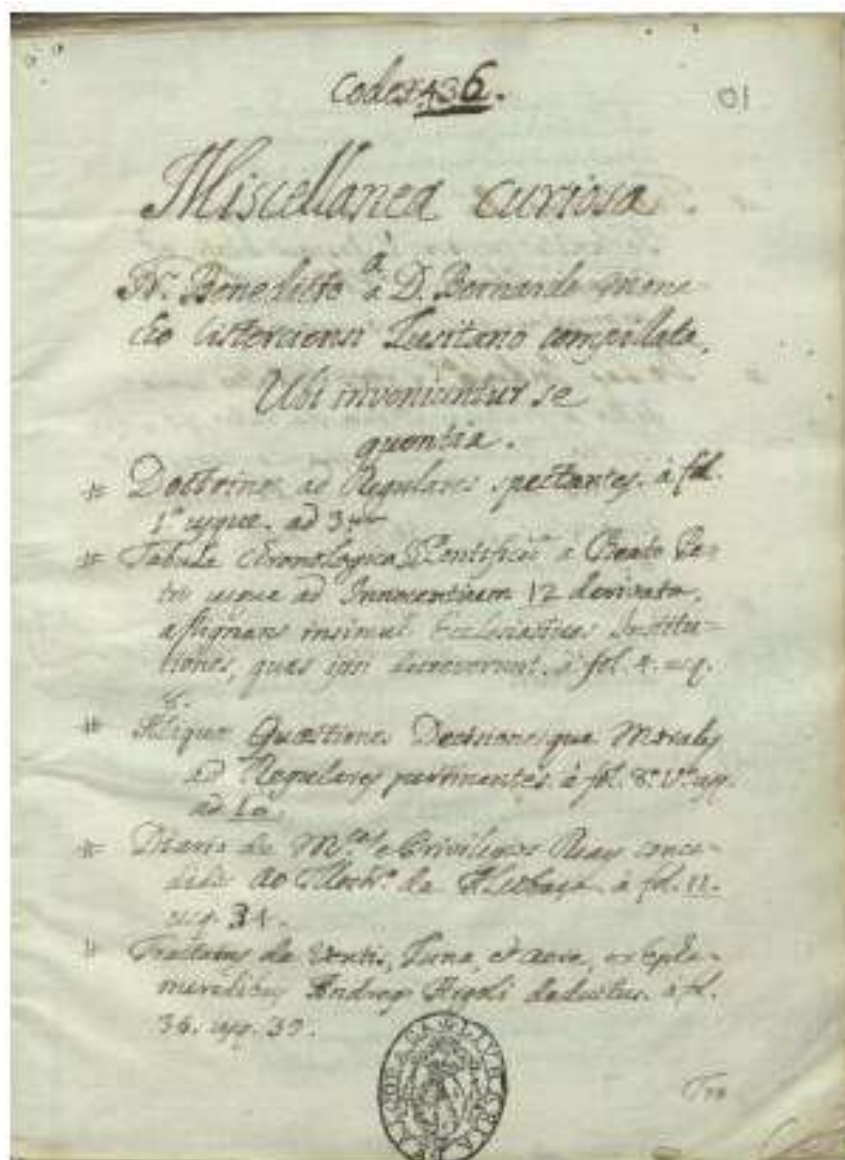 Codex 436.
01
Miscellanea curiosa.
Fr. Benedicto a D. Bernardo mona-
cho Cisterciensi Lusitano compillata,
Ubi inveniuntur se
quentia.
Doctrine ad Regulares spectantes. à fol.
1º usque. ad 3
Tabula chronologica Pontificũ à Beato Pe-
tro usque ad Innocentium 12 derivata,
assignans insimul Ecclesiasticas Institu-
tiones, quas ipsi decreverunt. à fol. 4. usq.
8.
Aliquæ Quæstiones Decisionesque Morales
ad Regulares pertinentes. à fol. 8. vº usq.
ad 10.
de M.ces e Privilegios Reaes conce-
didos ao Mostrº. de Alcobaça à fol. 11.
usq. 34.
Tractatus de Ventis, Luna, et aere, ex Ephe-
meridibus Andreæ Argoli deductus. à fol.
36. usq. 39.